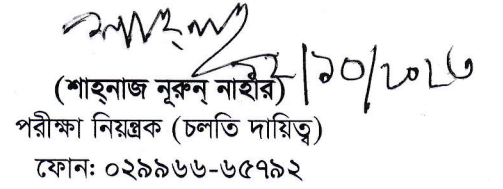 শাহনাজ
১২/১০/২০২৩
(শাহ্‌নাজ নূরুন্ নাহার)
পরীক্ষা নিয়ন্ত্রক (চলতি দায়িত্ব)
ফোন: ০২৯৯৬৬-৬৫৭৯২